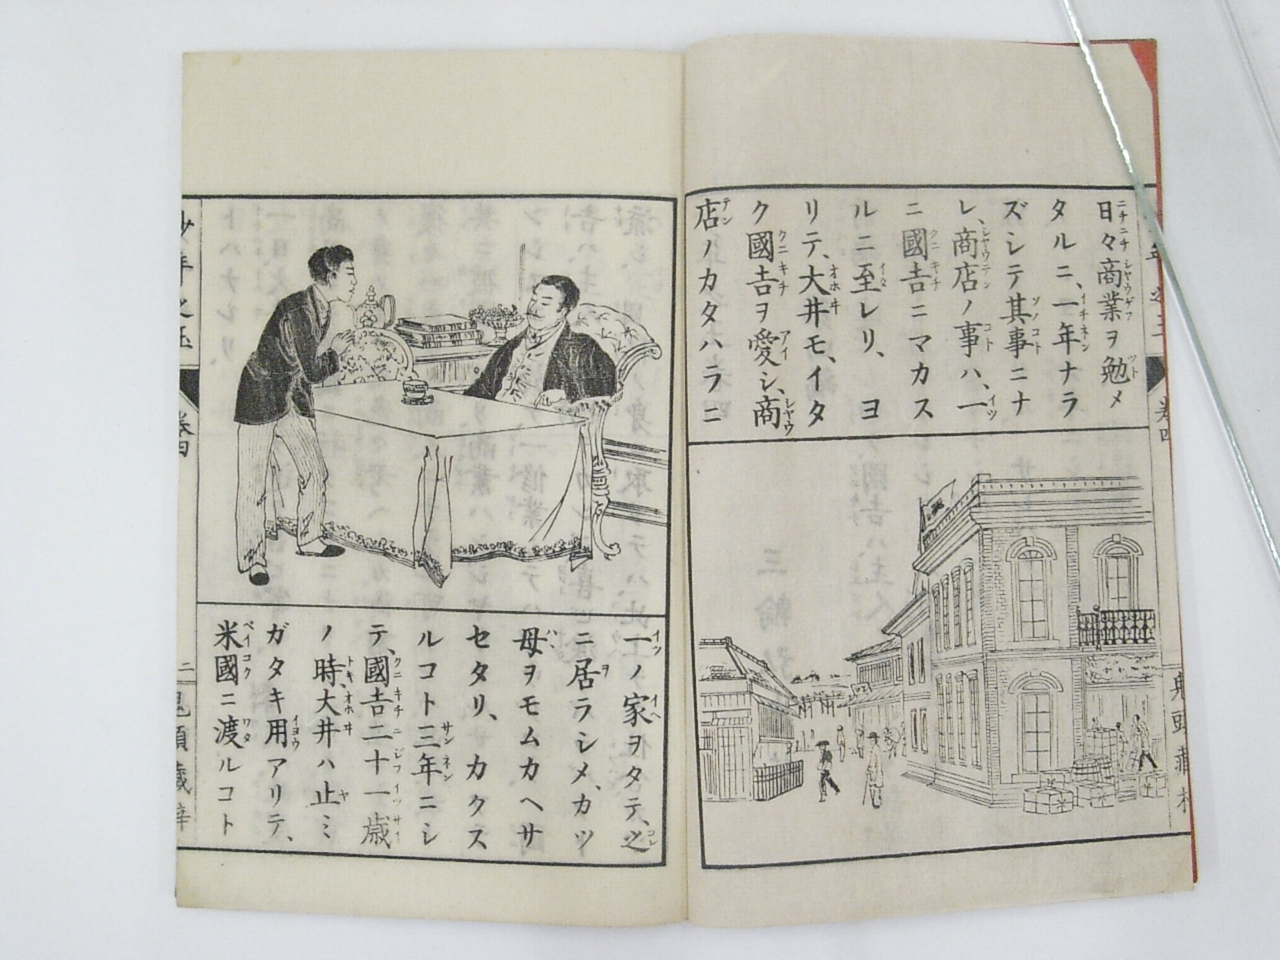 日々商業ヲ勉メ
タルニ、一年ナラ
ズシテ其事ニナ
レ、商店ノ事ハ、一
ニ國𠮷ニマカス
ルニ至レリ、ヨ
リテ、大井モ、イタ
ク國𠮷ヲ愛シ、商
店ノカタハラニ
一ノ家ヲタテ、之
ニ居ラシメ、カツ
母ヲモムカヘサ
セタリ、カクス
ルコト三年ニシ
テ、國𠮷二十一歳
ノ時、大井ハ止ミ
ガタキ用アリテ、
米國ニ渡ルコト
少年之玉
卷四
二